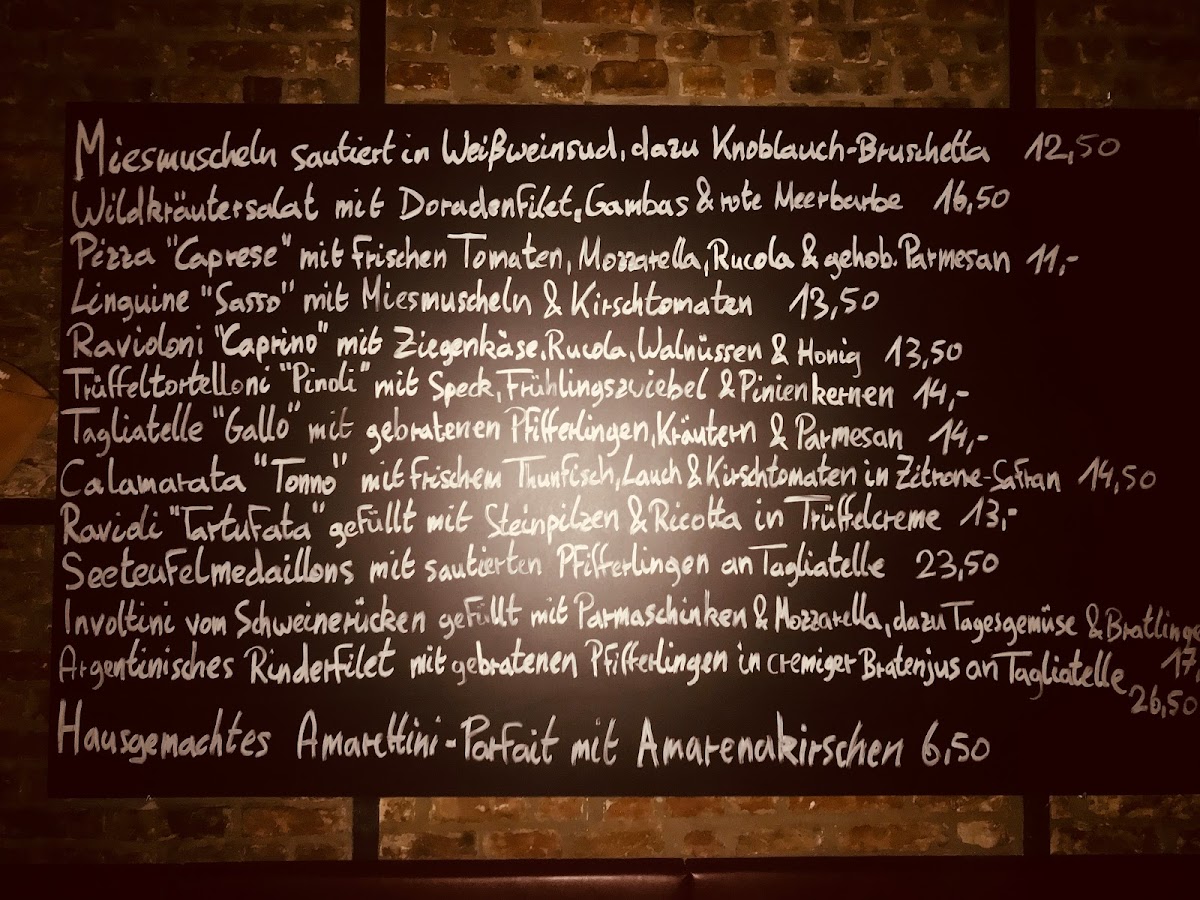 Miesmuscheln sautiert in Weißweinsud, dazu Knoblauch-Bruschetta 12,50
Wildkräutersalat mit Doradenfilet, Gambas & rote Meerbarbe 16,50
Pizza "Caprese" mit frischen Tomaten, Mozzarella, Rucola & gehob. Parmesan 11,-
Linguine "Sasso" mit Miesmuscheln & Kirschtomaten 13,50
Ravioloni "Caprino" mit Ziegenkäse, Rucola, Walnüssen & Honig 13,50
Trüffeltortelloni "Pinoli" mit Speck, Frühlingszwiebel & Pinienkernen 14,-
Tagliatelle "Gallo" mit gebratenen Pfifferlingen, Kräutern & Parmesan 14,-
Calamarata "Tonno" mit frischem Thunfisch, Lauch & Kirschtomaten in Zitrone-Safran 14,50
Ravioli "Tartufata" gefüllt mit Steinpilzen & Ricotta in Trüffelcreme 13,-
Seeteufelmedaillons mit sautierten Pfifferlingen an Tagliatelle 23,50
Involtini vom Schweinerücken gefüllt mit Parmaschinken & Mozzarella, dazu Tagesgemüse & Bratlinge
17,
Argentinisches Rinderfilet mit gebratenen Pfifferlingen in cremiger Bratenjus an Tagliatelle
26,50
Hausgemachtes Amarettini-Parfait mit Amarenakirschen 6,50